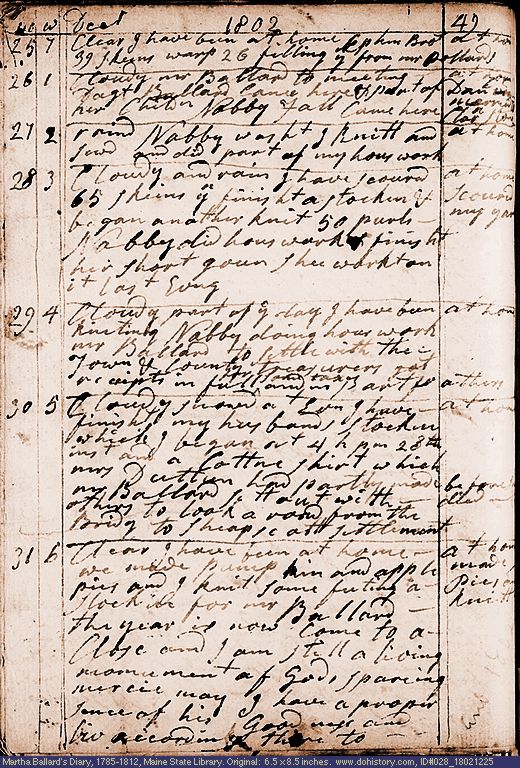 Dect 1802 49
25 7 Clear I have been at home Ephm Bro at home
39 skeins warp 26 filling yn from mr Pollards
26 1 Cloudy mr Ballard to meeting at home
Dagt Ballard Came here & part of
her Childn Nabby & all Came here
27 2 raind Nabby washt I knitt and at home
swd and did part of my hous work
28 3 Cloudy and rain I have scourd at home
65 skeins yn finisht a stockin & Scourd
began another knit 50 purls my yarn
Nabby did hous work & finisht
her short goun shee workt on
it last Evng
29 4 Cloudy part of ye day I have been at home
kniting Nabby doing hous work
mr Ballard to settle with the
Town & County treasurers got
receipts in full and
30 5 Cloudy snowd at Evn I have at home
finisht my husbands stockin
which I began at 4 h pm 28th
inst and a Cottne shirt which
mrs Dutten had partly made before
mr Ballard sett out with
others to look a road from the
bridg to sheapscatt settlement
31 6 Clear I have been at home at home
we made pumpkin and apple made
pies and I knit some futing a Pies &
stockin for mr Ballard knitt
the year is now Come to a
Close and I am still a living
monument of Gods sparing
mercie may I have a proper
sence of his Goodness and
liv according there to
Martha Ballard's Diary, 1785-1812, Maine State Library. Original: 6.5 x 8.5 inches. www.dohistory.com, ID#028_18021225